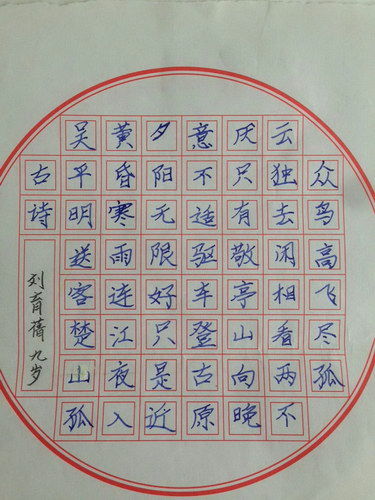 众鸟高飞尽孤
云独去闲相看两不
厌只有敬亭山向晚
意不适驱车登古原
夕阳无限好只是近
黄昏寒雨连江夜入
吴平明送客楚山孤
古诗
刘育 九岁